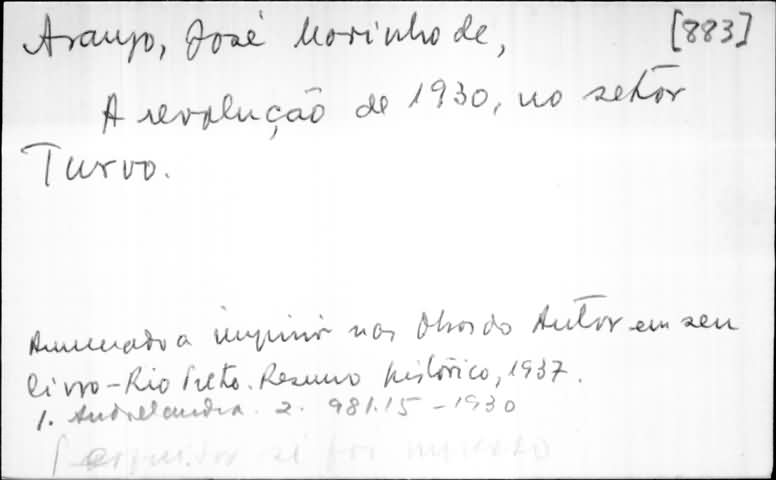 Araujo, José Marinho de, [883]
A revolução de 1930, no setor
Turvo.
Anunciado a imprimir nas Obras do Autor em seu
livro - Rio Preto. Resumo histórico, 1937.
1. Andrelandia. 2. 981.15 - 1930
se foi impresso